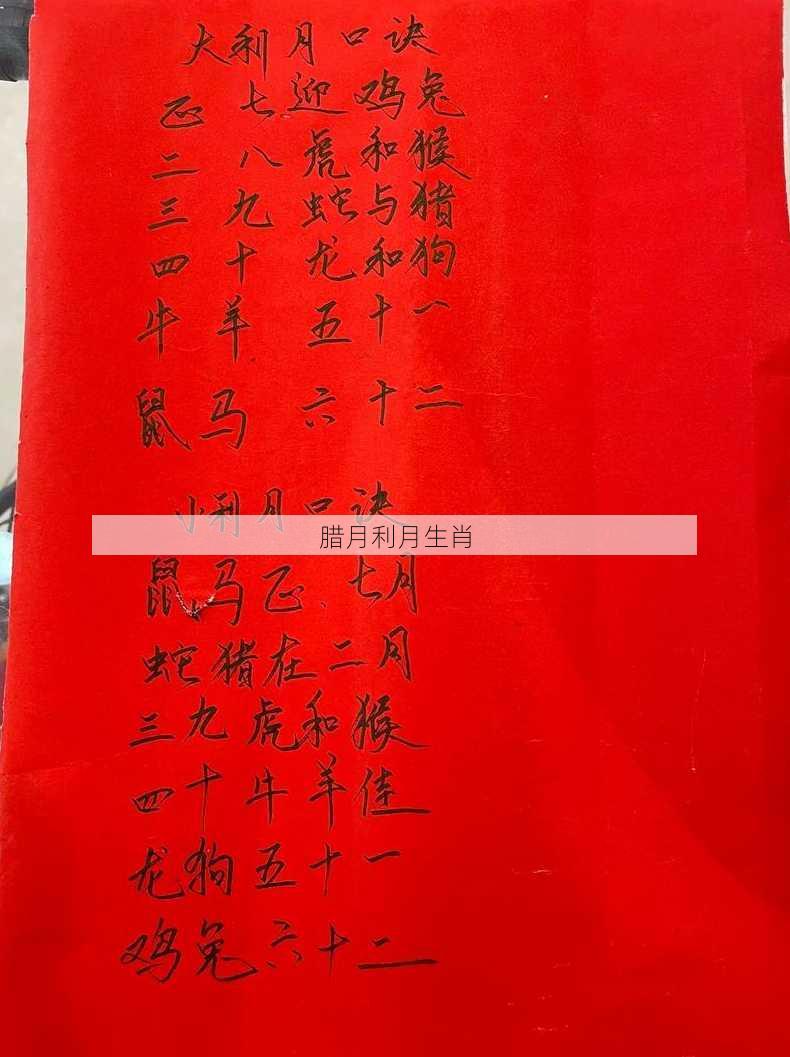 大利月口诀
正七迎鸡兔
二八虎和猴
三九蛇与猪
四十龙和狗
牛羊五十一
鼠马六十二
小利月口诀
腊月利月生肖
鼠马正、七月
蛇猪在二月
三九虎和猴
四十牛羊佳
龙狗五十一
鸡兔六十二